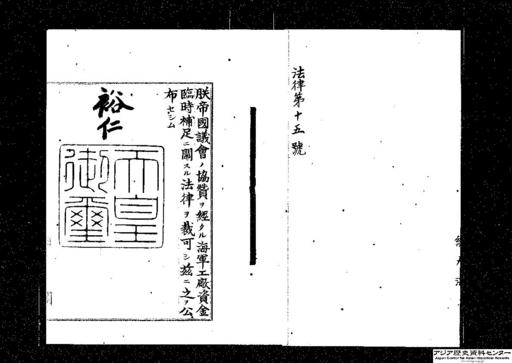 法律第十五號
朕帝國議會ノ協贊ヲ經タル海軍工廠資金
臨時補足ニ關スル法律ヲ裁可シ茲ニ之ヲ公
布セシム
裕仁
天皇
御璽
アジア歴史資料センター
Japan Center for Asian Historical Records